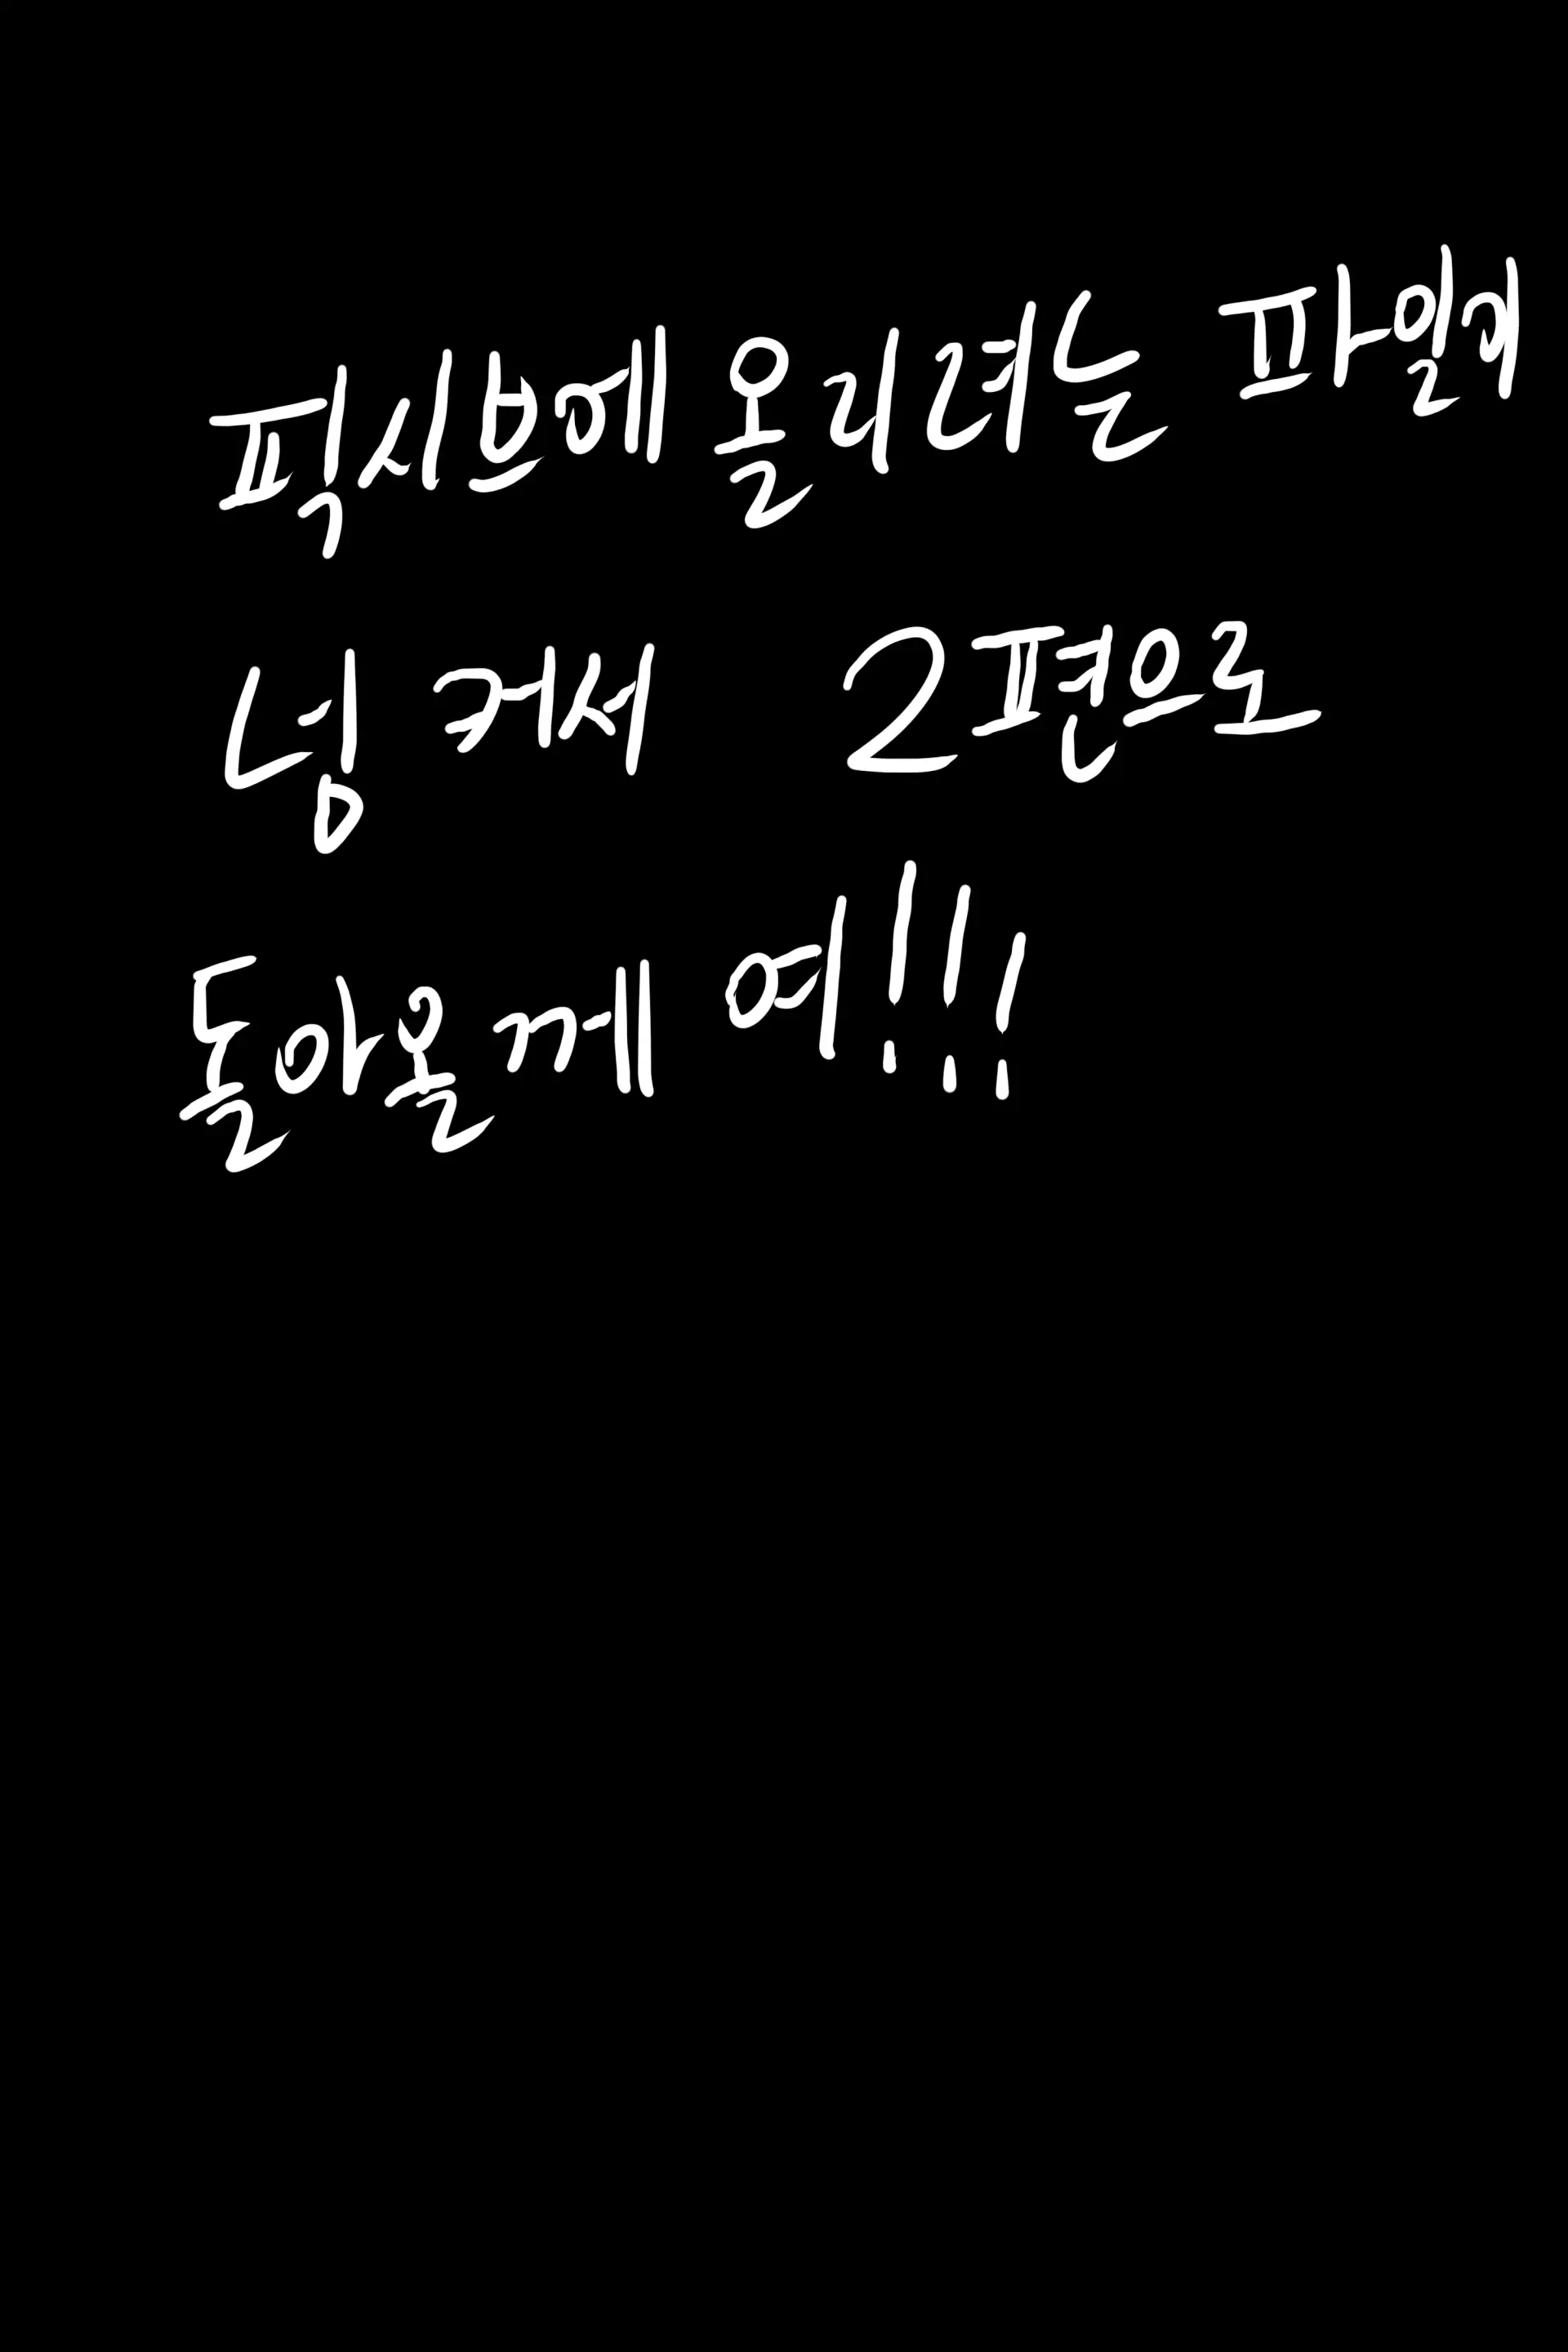 픽시브에 올리려는 파일이
넘 커서 2편으로
돌아올께여!!!